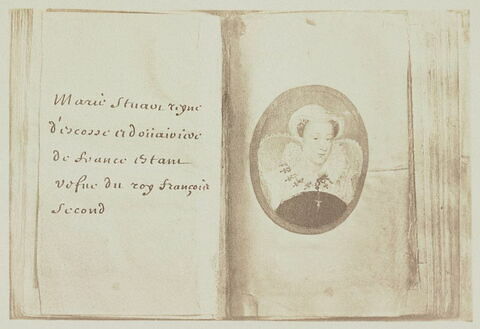 Marie Stuart reyne
d'escosse et doüairiere
de france Estant
vefue du roy françois
second